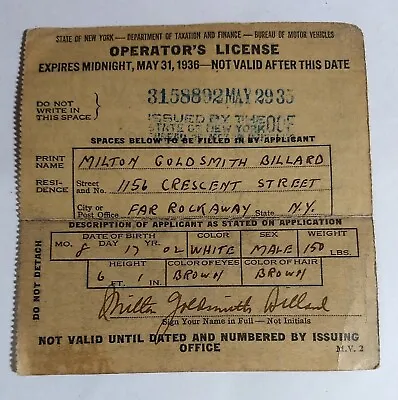 STATE OF NEW YORK — DEPARTMENT OF TAXATION AND FINANCE — BUREAU OF MOTOR VEHICLES
OPERATOR'S LICENSE
EXPIRES MIDNIGHT, MAY 31, 1936—NOT VALID AFTER THIS DATE
DO NOT WRITE IN THIS SPACE } 3158892 MAY 29 35
ISSUED BY THE
STATE OF NEW YORK
SPACES BELOW TO BE FILLED IN BY APPLICANT
PRINT NAME MILTON GOLDSMITH BILLARD
RESIDENCE Street and No. 1156 CRESCENT STREET
City or Post Office FAR ROCKAWAY State N.Y.
DESCRIPTION OF APPLICANT AS STATED ON APPLICATION
DATE OF BIRTH COLOR SEX WEIGHT
MO. 8 DAY 17 YR. 02 WHITE MALE 150 LBS.
HEIGHT COLOR OF EYES COLOR OF HAIR
6 FT. 1 IN. BROWN BROWN
Milton Goldsmith Billard
Sign Your Name in Full — Not Initials
NOT VALID UNTIL DATED AND NUMBERED BY ISSUING OFFICE
M.V. 2
DO NOT DETACH